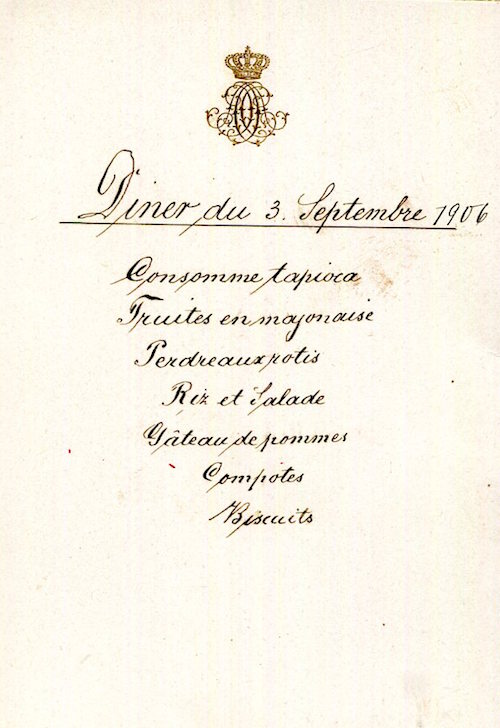 Diner du 3. Septembre 1906
Consomme tapioca
Truites en majonaise
Perdreaux rotis
Riz et Salade
Gâteau de pommes
Compotes
Biscuits